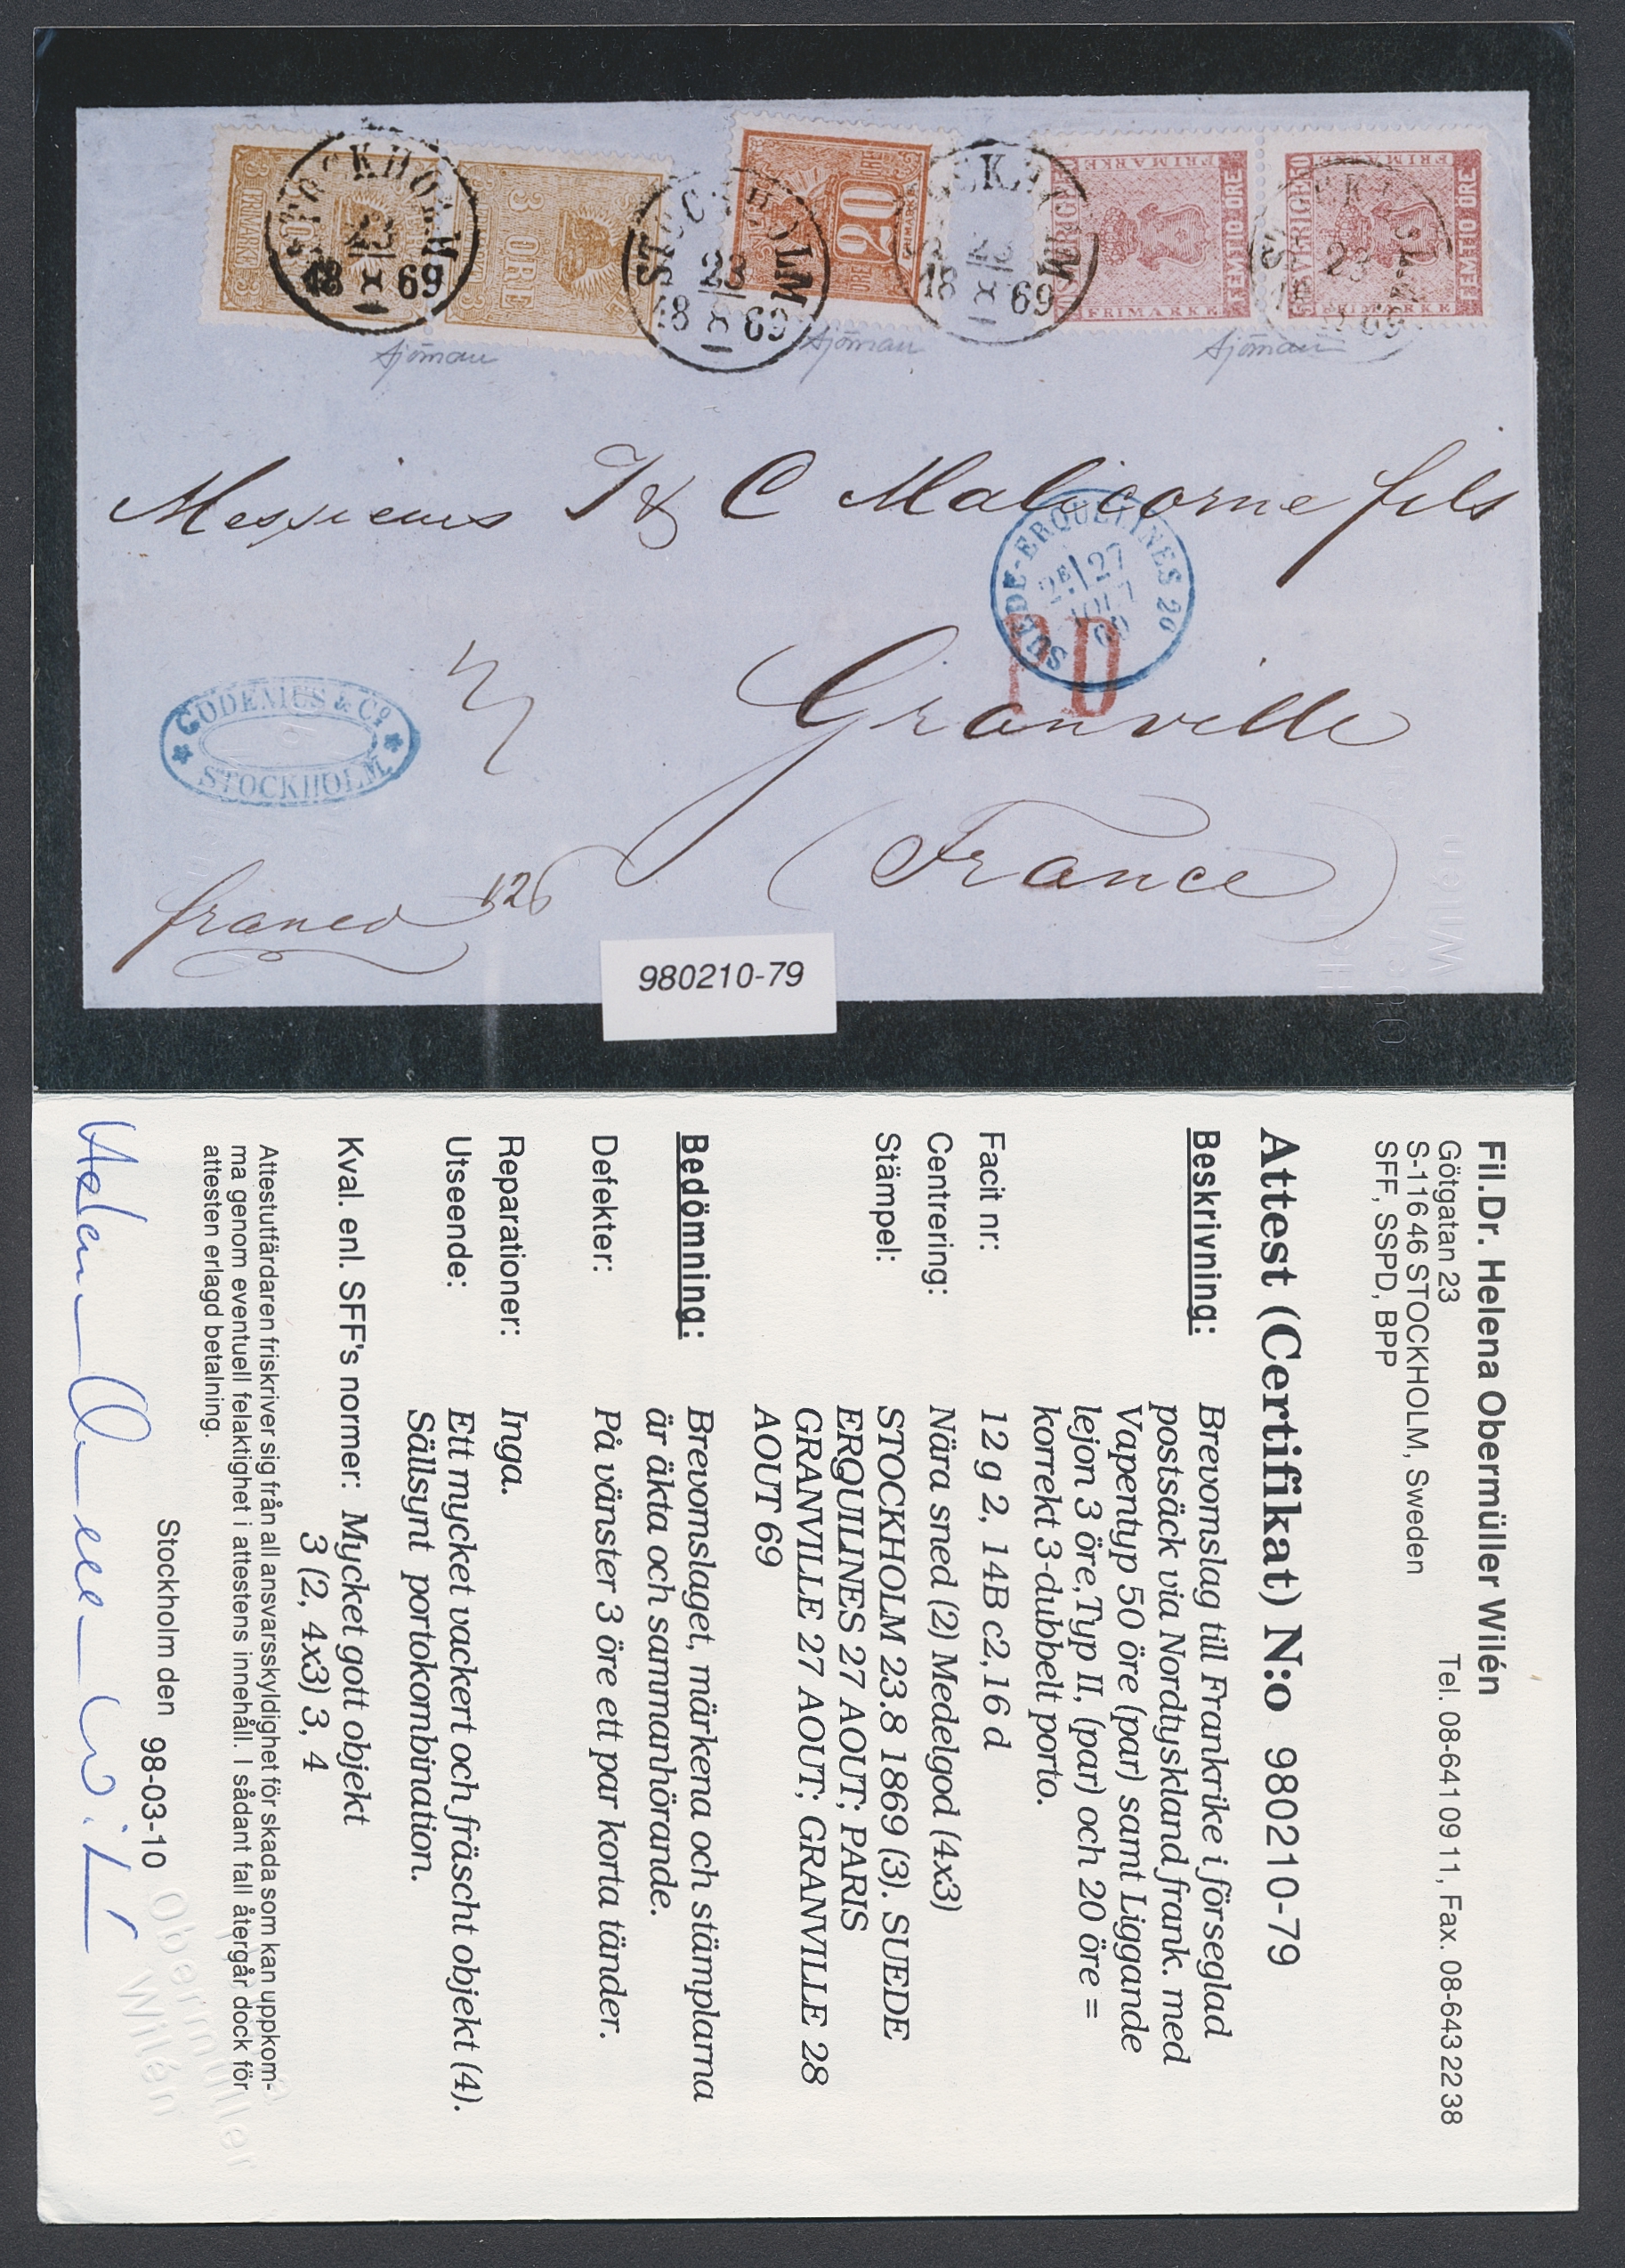 STOCKHOLM
23
X
18 69
STOCKHOLM
23
18 X 69
23
X
18 69
23
3 ÖRE
20
FRIMÄRKE
FEMTIO ÖRE
FRIMÄRKE
FRIMÄRKE
FEMTIO ÖRE
FRIMÄRKE
Sjöman
Sjöman
Sjöman
Messieurs J & C Malicorne fils
SUEDE-ERQUELINES
27
PD
Granville
GODENIUS & Co
STOCKHOLM
(France)
franco 126
980210-79
Fil.Dr. Helena Obermüller Wilén
Götgatan 23
S-116 46 STOCKHOLM, Sweden
SFF, SSPD, BPP
Tel. 08-641 09 11, Fax. 08-643 22 38
Attest (Certifikat) N:o 980210-79
Beskrivning: Brevomslag till Frankrike i förseglad
postsäck via Nordtyskland frank. med
Vapentyp 50 öre (par) samt Liggande
lejon 3 öre,Typ II, (par) och 20 öre =
korrekt 3-dubbelt porto.
Facit nr: 12 g 2, 14B c2,16 d
Centrering: Nära sned (2) Medelgod (4x3)
Stämpel: STOCKHOLM 23.8 1869 (3). SUEDE
ERQUILINES 27 AOUT; PARIS
GRANVILLE 27 AOUT; GRANVILLE 28
AOUT 69
Bedömning: Brevomslaget, märkena och stämplarna
är äkta och sammanhörande.
Defekter: På vänster 3 öre ett par korta tänder.
Reparationer: Inga.
Utseende: Ett mycket vackert och fräscht objekt (4).
Sällsynt portokombination.
Kval. enl. SFF's normer: Mycket gott objekt
3 (2, 4x3) 3, 4
Attestutfärdaren friskriver sig från all ansvarsskyldighet för skada som kan uppkom-
ma genom eventuell felaktighet i attestens innehåll. I sådant fall återgår dock för
attesten erlagd betalning.
Stockholm den 98-03-10
Obermüller
Wilén